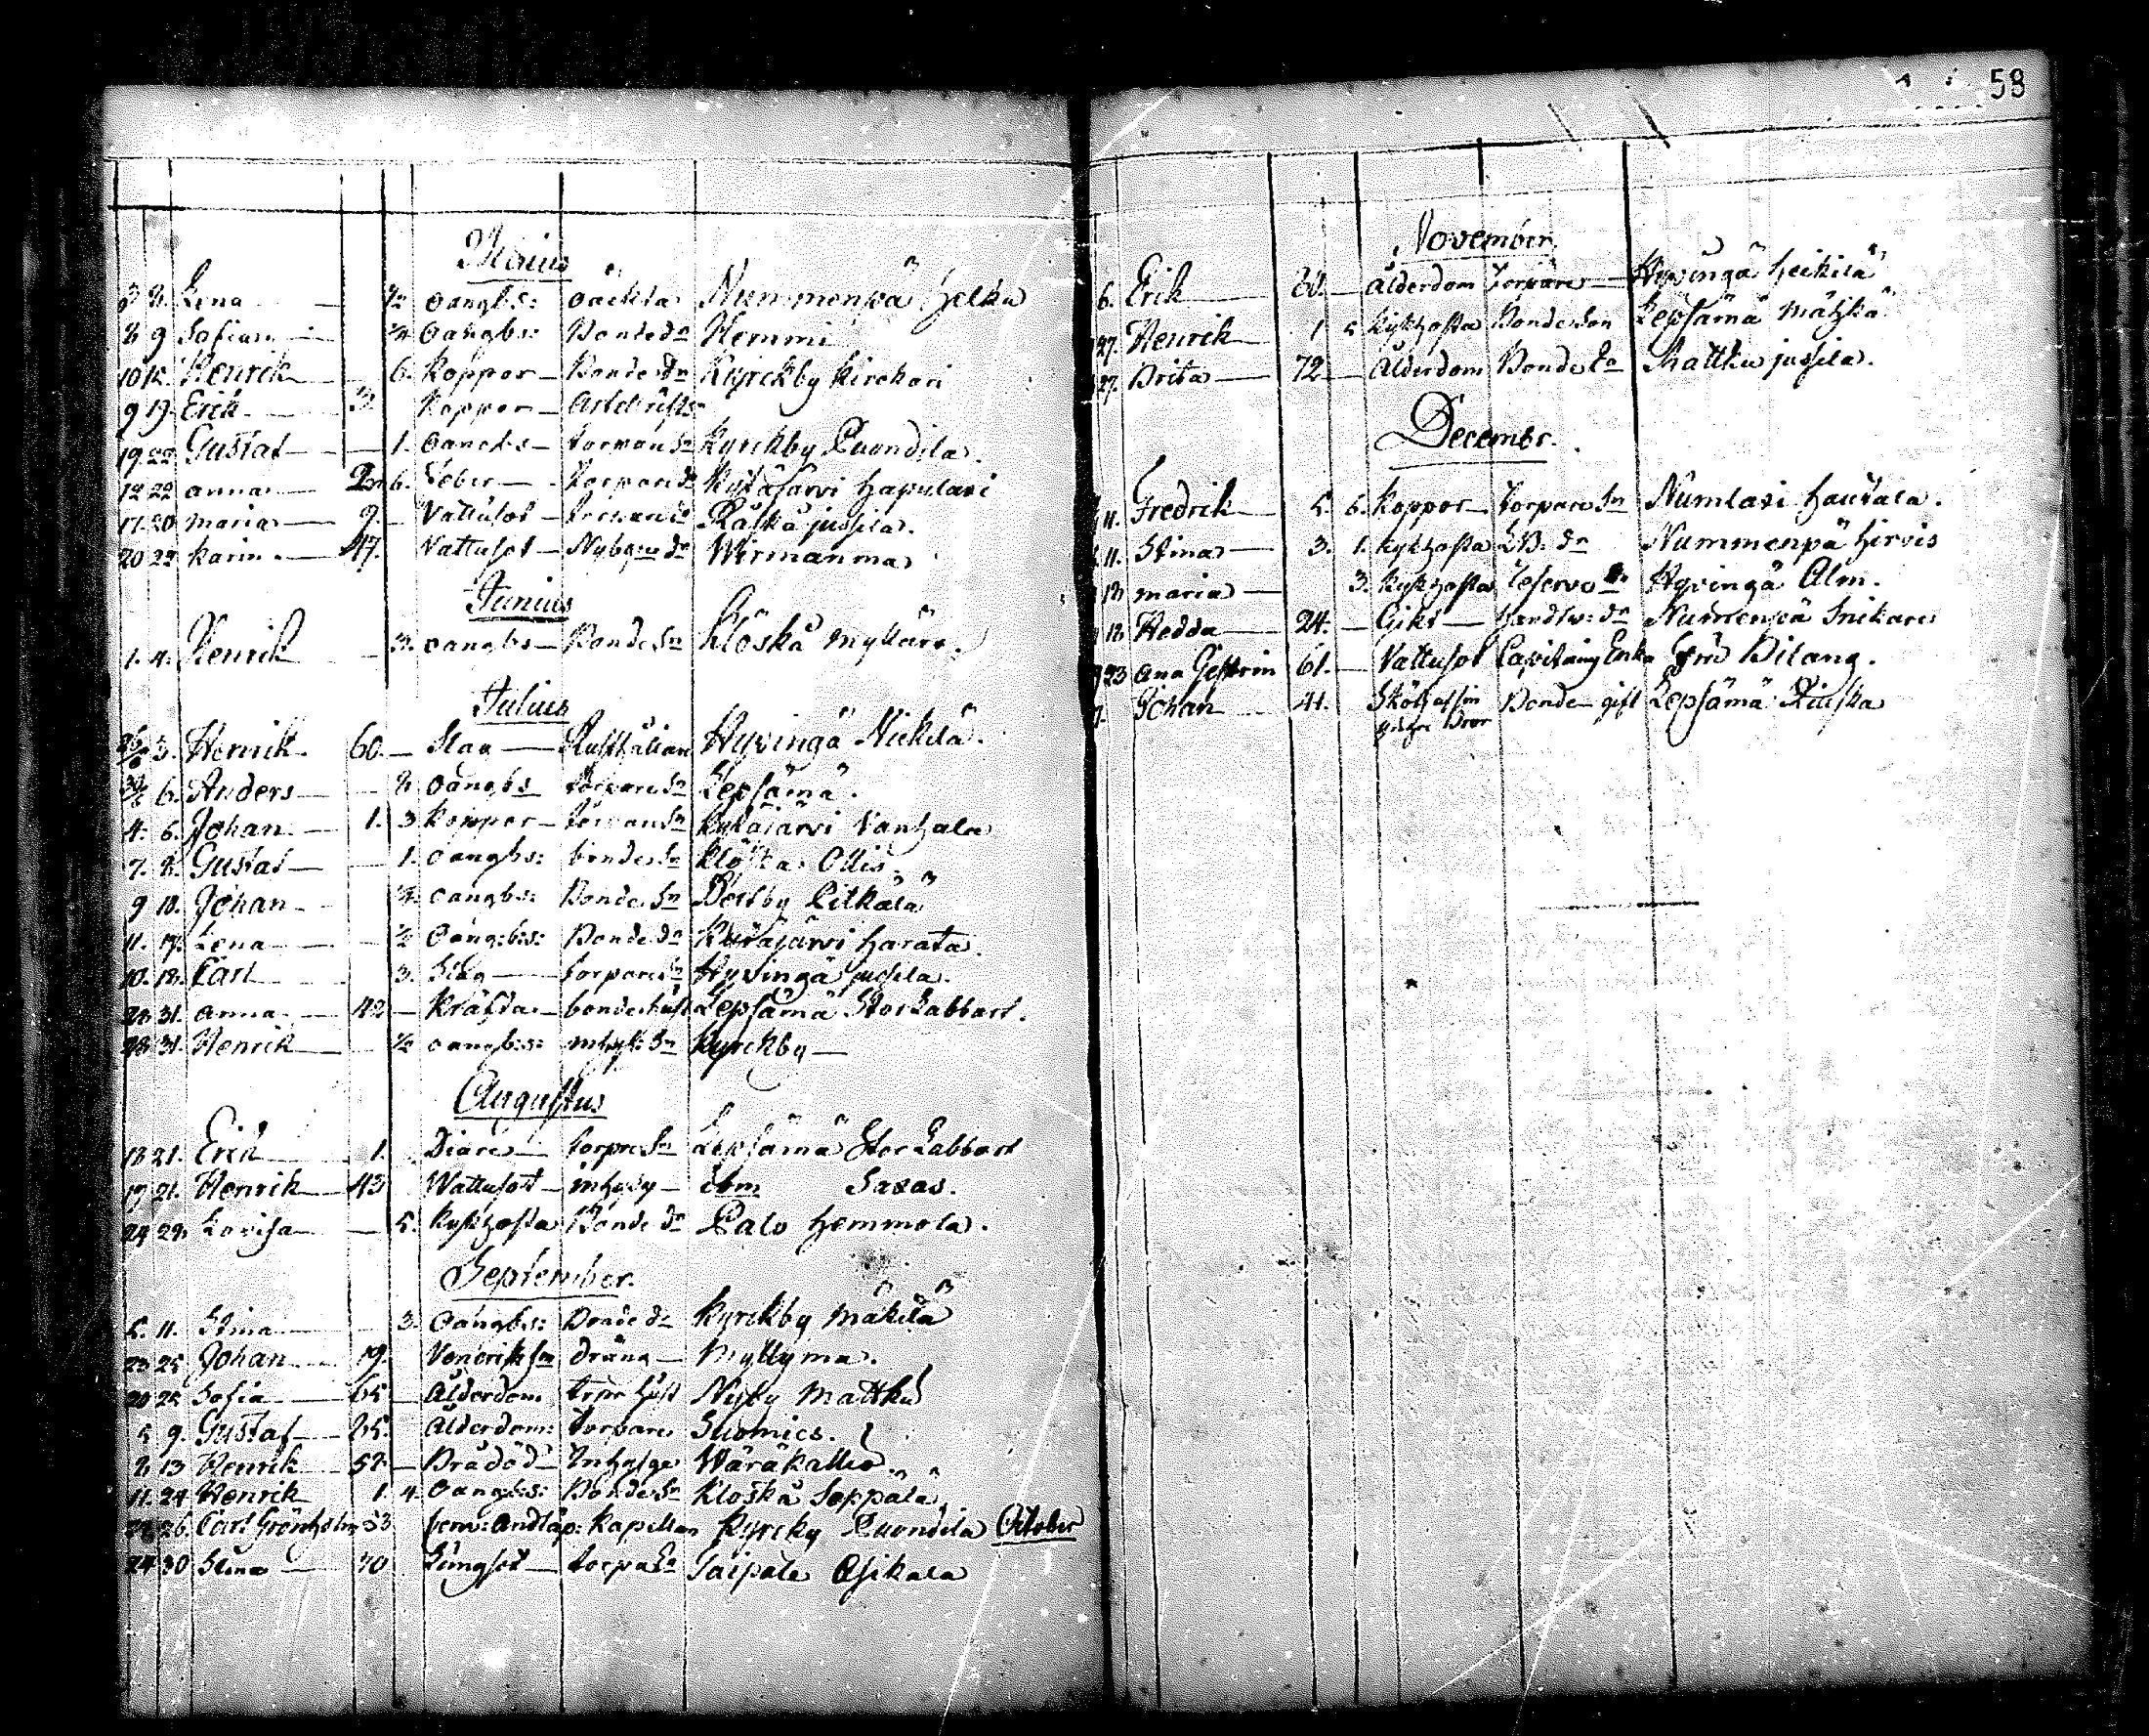 58
Maius
8. Lena — ½ oangbs: oäckta Nummenpä Helka
8 9 Sofia — ¾ oangbs: Bonde dr Hemmi
10 12. Henrik — 6. Koppor — Bonde Kyrckby Kirckari
9 19. Erik — 3. Koppor —
19. 22. Gustaf — 1. oangbs — torpare Sn Kyrckby Puondila.
12 22 anna — 2. 6. Feber — torpare dr Kytäjärvi Hapulari
17. 20 maria — 9. — Vattusot — Räskä jussila.
20 23 Karin — 47. Vattusot — Wirmanma
Junius
1. 4. Henrik — 3. oangbs — Bonde Sn Klöskä Mylläre.
Julius
3. Henrik 60. — Slag — Rusthållare Hyvingä Nickilä.
6. Anders — oangbs torpare Sn Lepsämä.
4. 6. Johan — 1. 3 Koppor — torpare Sn Kytäjärvi Vanhala
7. 8. Gustaf — 1. oangbs: bonde Sn Klöska Ollis
9 18. Johan — oangbs: Bonde Sn Pitkälä
11. 17. Lena — ½ oang:b:s: Bonde dr Kytäjärvi Harata.
10. 18. Carl — 3. Slag — torpare Sn Hyvingä jussila.
28 31. anna — 42 — Kräfta — bondehust Lepsämä Stor Labbart.
28 31. Henrik — ½ oangb:s: inhys: Sn Kyrckby —
Augustus
18 21. Erik — 1. Diare — torpre Sn Lepsämä Stor Labbart
17 21. Henrik — 43 Wattusot — inhysg — ibm Saxas.
24 29. Lovisa — 5. Kykhosta Bonde dr Palo Hemmola.
September.
5. 11. Stina — 3. oangbs: Bonde dr Kyrckby Mäkilä
23 25 Johan — 19. Venerisk dräng — Myllyma.
20 25 Sofia — 65 — Ålderdom hust Nyby Mattku
5 9. Gustaf — 85. Ålderdom: torpare Suomies.
8 13 Henrik — 52. — Brådöd — Inhysge Wäräkallio
11. 24 Henrik 1. 4. oangb:s: Bonde Sn Klöskä Seppälä
26. Carl Grönholm 53 Kapellan Kyrcky Puondila October
24 30 Stina — 70 Lungsot — Saipale Asikala
November.
6. Erik — 80. — Ålderdom Torpare — Hyvingä Heikilä
27. Henrik — 1 5 Kykhosta Bonde Son Lepsämä Mätzkä
27. Brita — 72 — Ålderdom Bonde Ea Mattku jussila.
Decembr.
11. Fredrik — 5. 6. Koppor — Torpare Sn Numlari Hautala.
11. Stina — 3. 1. Kykhosta dr Nummenpä Hirvis
13 maria — 3. Kykhosta Reserv Hyvingä Alm.
18 Hedda — 24. — Gikt — dr Nummenpä Snikare
23 ana Gestrin 61. — Vattusot Capitains Enka Fru Pilang.
Johan — 41. Bonde — gift Lepsämä